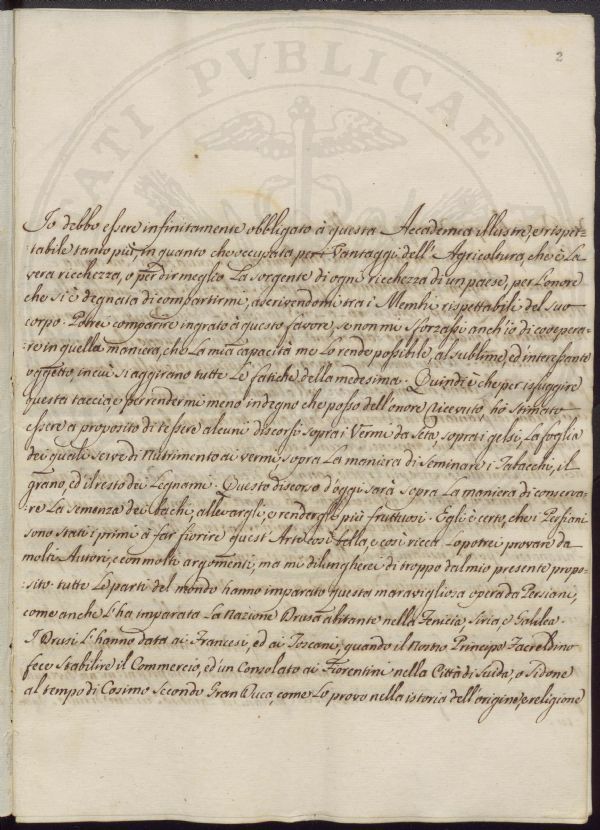 ATI PVBLICAE
2
Io debbo essere infinitamente obbligato à questa Accademia illustre, e rispet-
tabile tanto più, in quanto che occupata per i Vantaggi dell' Agricoltura, che è La
vera ricchezza, o per dir meglio La sorgente di ogni ricchezza di un paese, per L'onore
che si è degnata di compartirmi, ascrivendomi tra i Membri rispettabili del suo
corpo. Potrei comparire ingrato à questo favore, se non mi sforzassi anch'io di coopera-
re in quella maniera, che La mia capacità me Lo rende possibile, al sublime, ed interessante
oggetto, in cui si aggirano tutte Le fatiche della medesima. Quindi è che per isfuggire
questa taccia, e per rendermi meno indegno che posso dell'onore ricevuto, hò stimato
essere a proposito di tessere alcuni discorsi sopra i Vermi da Seta, sopra i gelsi, La foglia
dei quali serve di Nutrimento ai vermi, sopra La maniera di Seminare i Tabacchi, il
grano, ed il resto dei Legnami. Questo discorso d'oggi sarà sopra La maniera di conserva-
re La semenza dei bachi, allevargli, e rendergli più fruttuosi. Egli è certo, che i Persiani
sono stati i primi à far fiorire quest' Arte così bella, e così ricca. Lo potrei provare da
molti Autori, e con molti argomenti, ma mi dilungherei di troppo dal mio presente propo-
sito. tutte Le parti del mondo hanno imparato questa maravigliosa opera da Persiani,
come anche L'ha imparata La Nazione Drusa abitante nella Fenicia, Siria, e Galilea.
I Drusi L'hanno data ai Francesi, ed ai Toscani, quando il Nostro Principe Facreldino
fece stabilire il Commercio, ed un Consolato ai Fiorentini nella Città di Saida, o Sidone
al tempo di Cosimo Secondo Gran Duca, come Lo provo nella istoria dell'origine, e religione